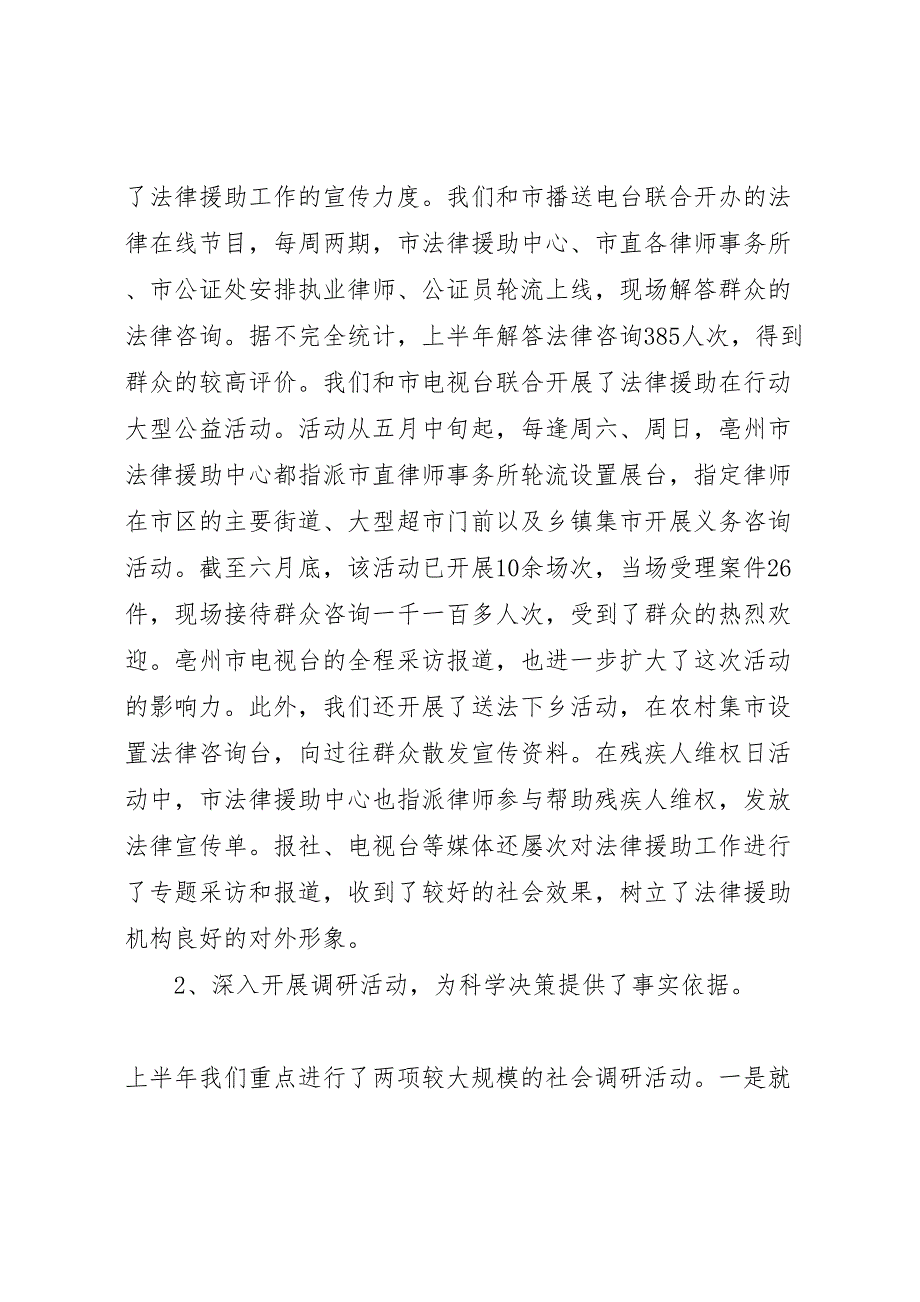 了法律援助工作的宣传力度。我们和市播送电台联合开办的法
律在线节目，每周两期，市法律援助中心、市直各律师事务所
、市公证处安排执业律师、公证员轮流上线，现场解答群众的
法律咨询。据不完全统计，上半年解答法律咨询385人次，得到
群众的较高评价。我们和市电视台联合开展了法律援助在行动
大型公益活动。活动从五月中旬起，每逢周六、周日，亳州市
法律援助中心都指派市直律师事务所轮流设置展台，指定律师
在市区的主要街道、大型超市门前以及乡镇集市开展义务咨询
活动。截至六月底，该活动已开展10余场次，当场受理案件26
件，现场接待群众咨询一千一百多人次，受到了群众的热烈欢
迎。亳州市电视台的全程采访报道，也进一步扩大了这次活动
的影响力。此外，我们还开展了送法下乡活动，在农村集市设
置法律咨询台，向过往群众散发宣传资料。在残疾人维权日活
动中，市法律援助中心也指派律师参与帮助残疾人维权，发放
法律宣传单。报社、电视台等媒体还屡次对法律援助工作进行
了专题采访和报道，收到了较好的社会效果，树立了法律援助
机构良好的对外形象。
2、深入开展调研活动，为科学决策提供了事实依据。
上半年我们重点进行了两项较大规模的社会调研活动。一是就